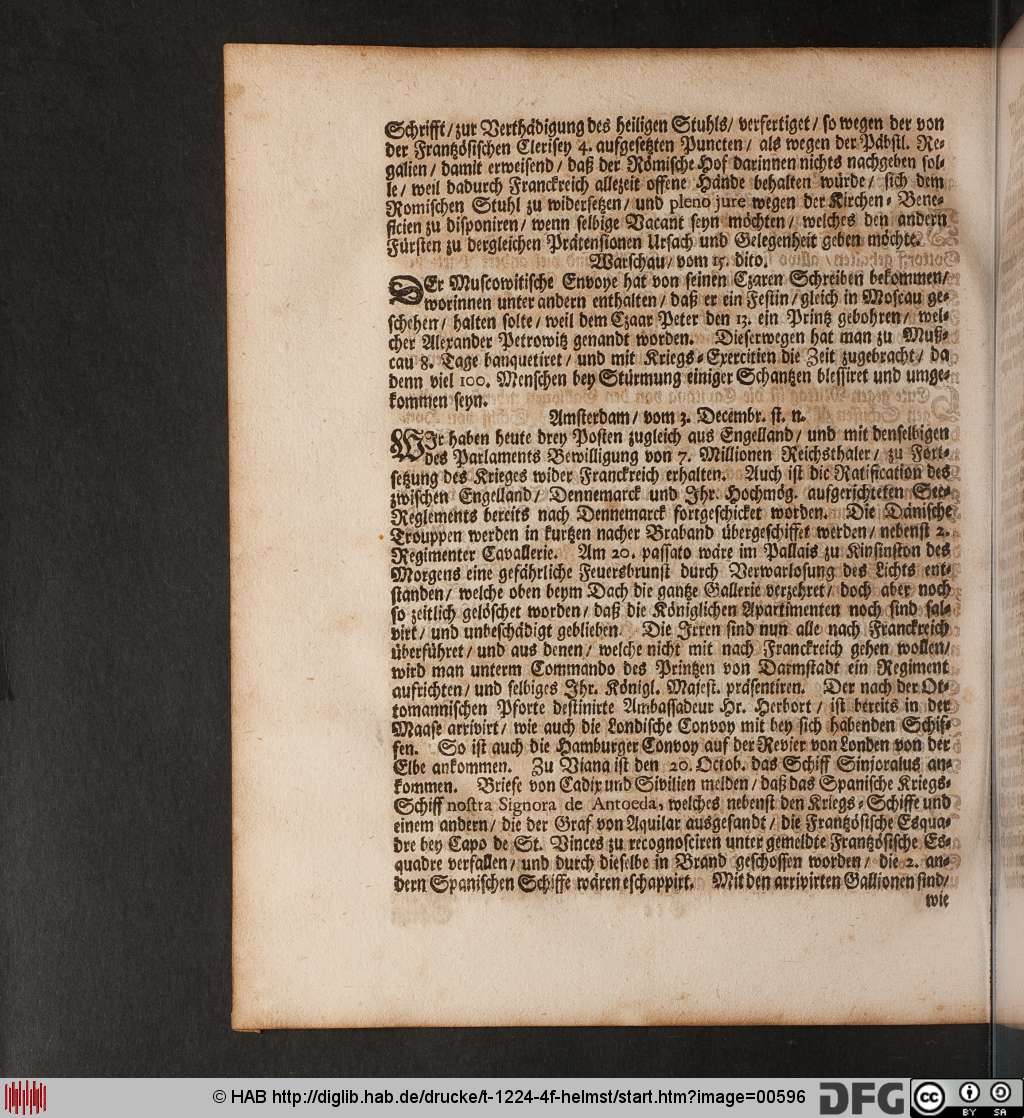 Schrifft/ zur Verthädigung des heiligen Stuhls/ verfertiget/ so wegen der von
der Frantzösischen Clerisey 4. aufgesetzten Puncten/ als wegen der Päbstl. Re-
galien/ damit erweisend/ daß der Römische Hof darinnen nichts nachgeben sol-
le/ weil dadurch Franckreich allezeit offene Hände behalten würde/ sich dem
Romischen Stuhl zu widersetzen/ und pleno jure wegen der Kirchen-Bene-
ficien zu disponiren/ wenn selbige Vacant seyn möchten/ welches den andern
Fürsten zu dergleichen Prätensionen Ursach und Gelegenheit geben möchte.
Warschau/ vom 15. dito.
DEr Muscowitische Envoye hat von seinen Czaren Schreiben bekommen/
worinnen unter andern enthalten/ daß er ein Festin/ gleich in Moscau ge-
schehen/ halten solte/ weil dem Czaar Peter den 13. ein Printz gebohren/ wel-
cher Alexander Petrowitz genandt worden. Dieserwegen hat man zu Muß-
cau 8. Tage banquetiret/ und mit Kriegs-Exercitien die Zeit zugebracht/ da
denn viel 100. Menschen bey Stürmung einiger Schantzen blessiret und umge-
kommen seyn.
Amsterdam/ vom 3. Decembr. st. n.
WIr haben heute drey Posten zugleich aus Engelland/ und mit denselbigen
des Parlaments Bewilligung von 7. Millionen Reichsthaler/ zu Fort-
setzung des Krieges wider Franckreich erhalten. Auch ist die Ratification des
zwischen Engelland/ Dennemarck und Ihr. Hochmög. aufgerichteten See-
Reglements bereits nach Dennemarck fortgeschicket worden. Die Dänische
Trouppen werden in kurtzen nacher Braband übergeschiffet werden/ nebenst 2.
Regimenter Cavallerie. Am 20. passato wäre im Pallais zu Kinsinston des
Morgens eine gefährliche Feuersbrunst durch Verwarlosung des Lichts ent-
standen/ welche oben beym Dach die gantze Gallerie verzehret/ doch aber noch
so zeitlich gelöschet worden/ daß die Königlichen Apartimenten noch sind sal-
virt/ und unbeschädigt geblieben. Die Irren sind nun alle nach Franckreich
überführet/ und aus denen/ welche nicht mit nach Franckreich gehen wollen/
wird man unterm Commando des Printzen von Darmstadt ein Regiment
aufrichten/ und selbiges Ihr. Königl. Majest. präsentiren. Der nach der Ot-
tomannischen Pforte destinirte Ambassadeur Hr. Herbort/ ist bereits in der
Maase arrivirt/ wie auch die Londische Convoy mit bey sich habenden Schif-
fen. So ist auch die Hamburger Convoy auf der Revier von Londen von der
Elbe ankommen. Zu Viana ist den 20. Octob. das Schiff Sinjoralus an-
kommen. Briefe von Cadix und Sivilien melden/ daß das Spanische Kriegs-
Schiff nostra Signora de Antoeda, welches nebenst den Kriegs-Schiffe und
einem andern/ die der Graf von Aquilar ausgesandt/ die Frantzösische Esqua-
dre bey Capo de St. Vinces zu recognosciren unter gemeldte Frantzösische Es-
quadre verfallen/ und durch dieselbe in Brand geschossen worden/ die 2. an-
dern Spanischen Schiffe wären eschappirt. Mit den arrivirten Gallionen sind/
wie
© HAB http://diglib.hab.de/drucke/t-1224-4f-helmst/start.htm?image=00596
DFG
cc BY SA